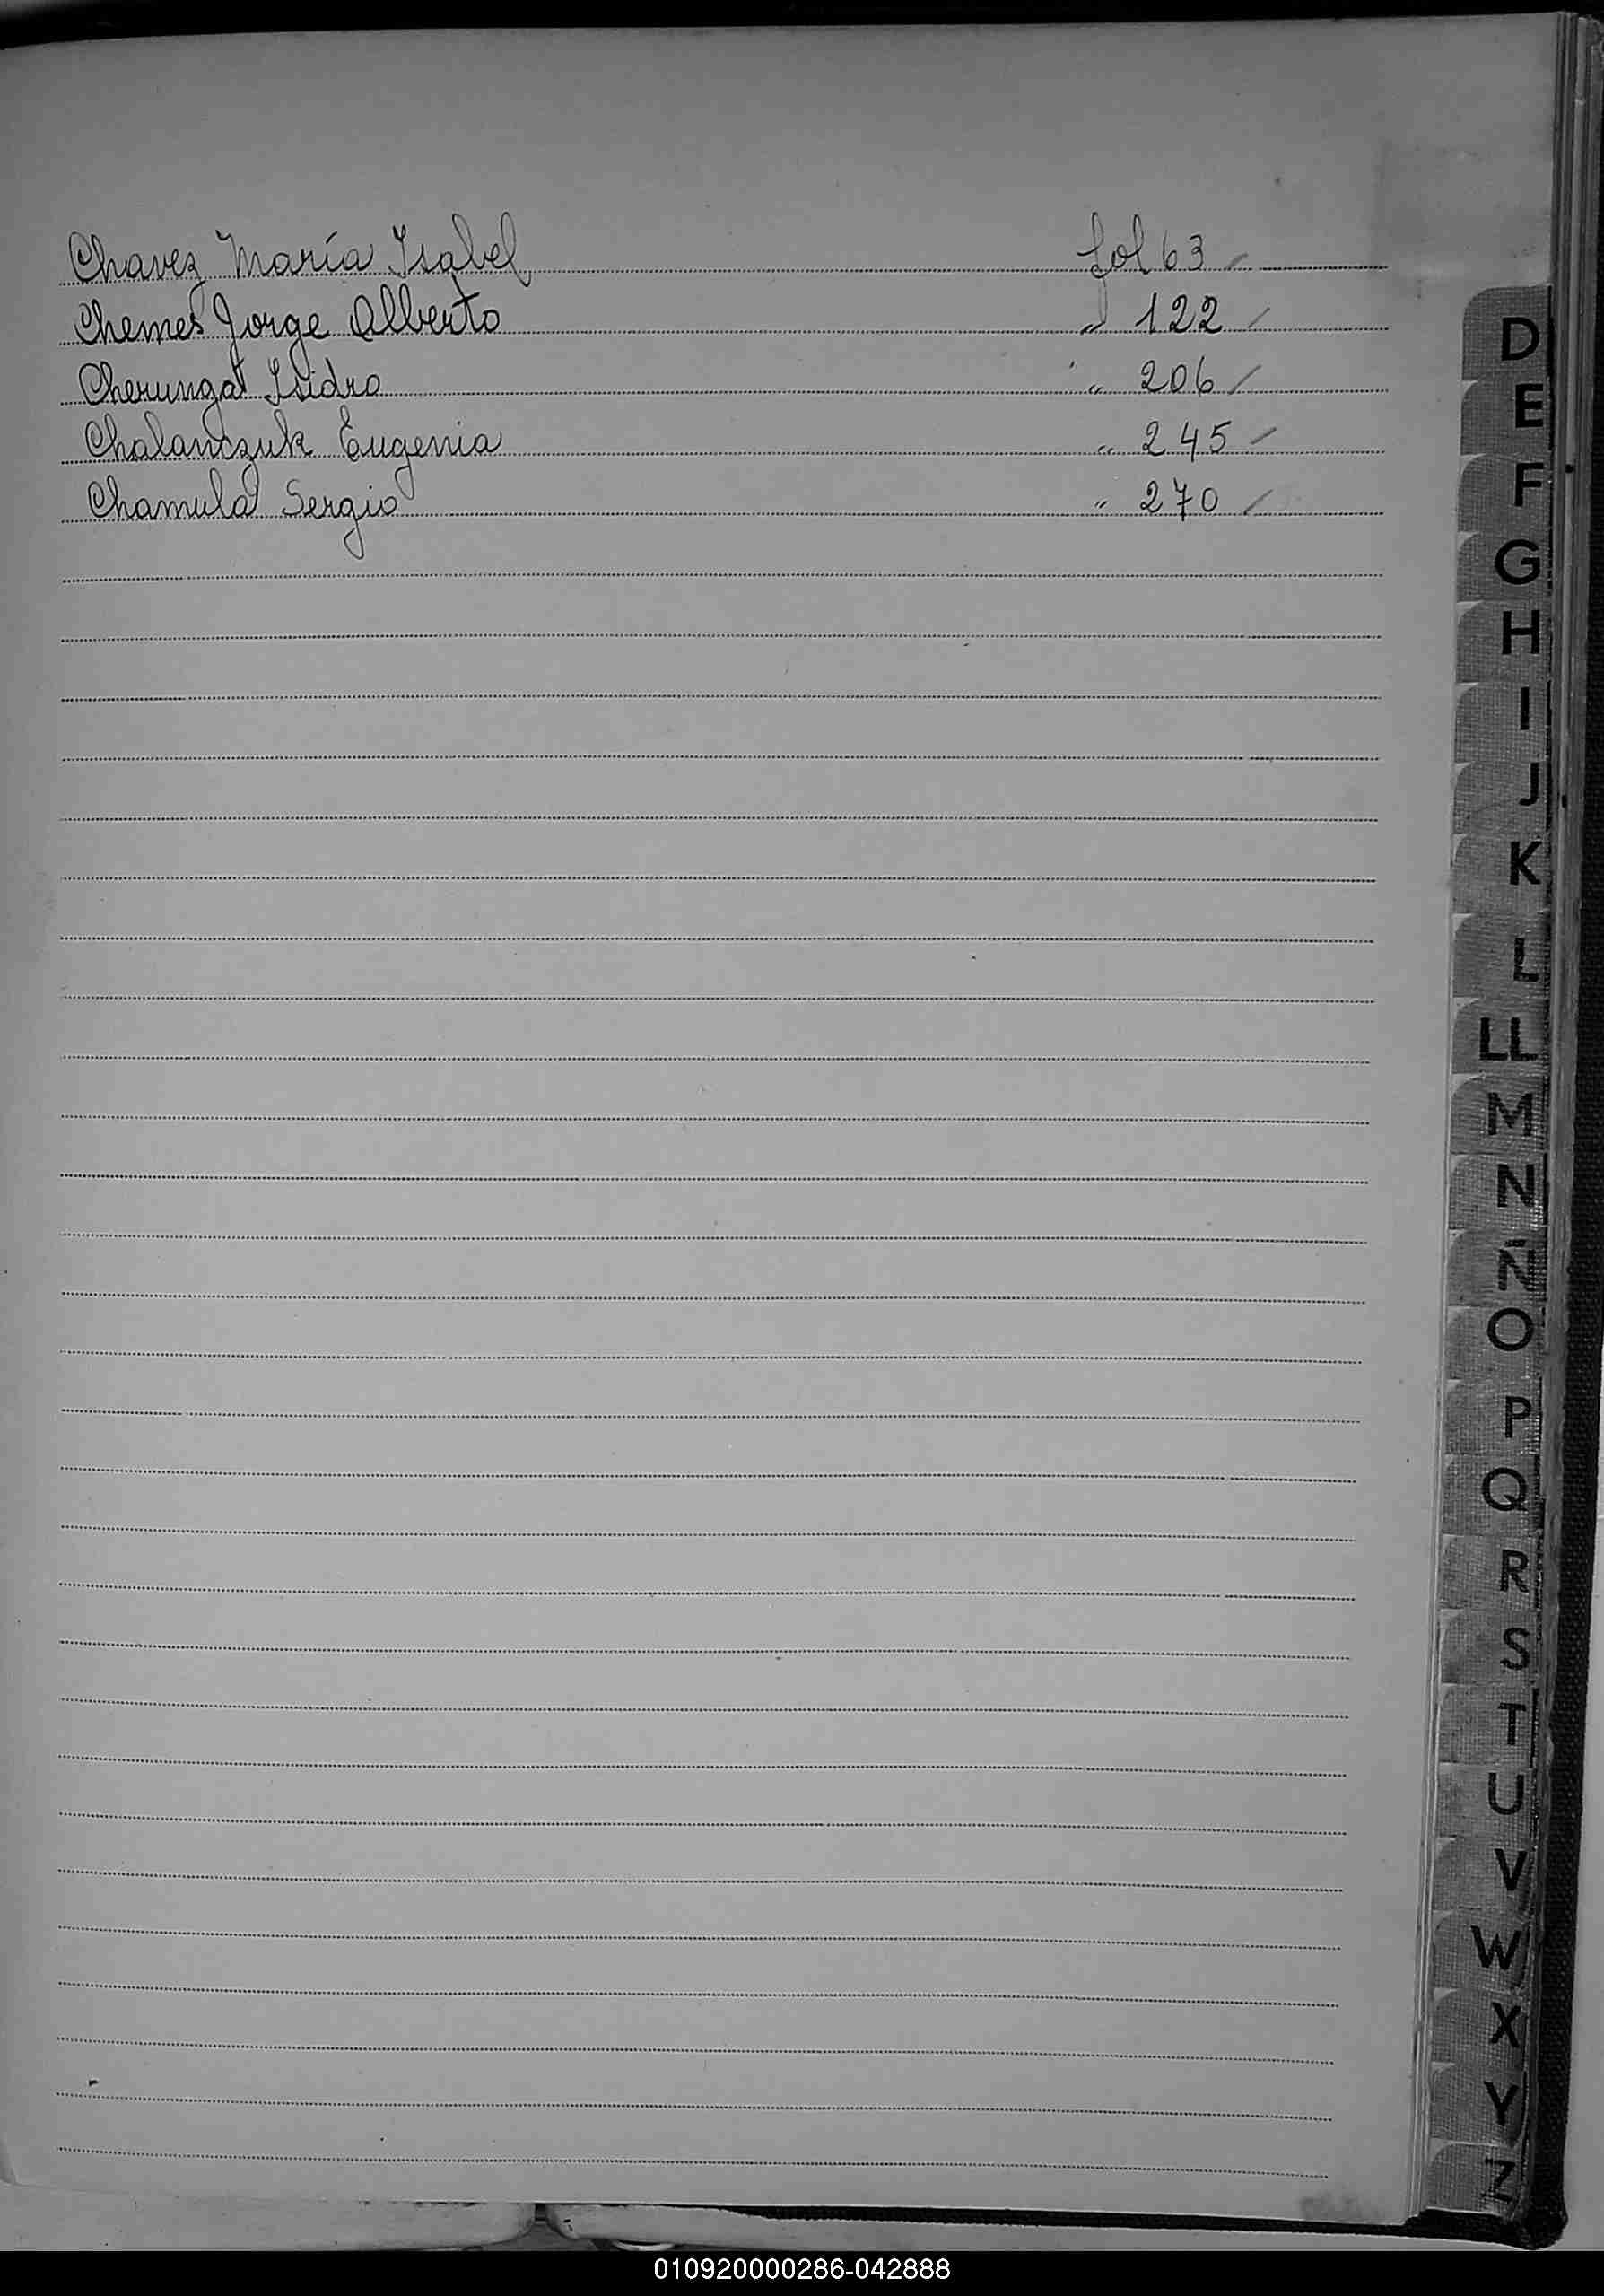 Chavez María Isabel fol 63 /
Chemes Jorge Alberto " 122 /
Cherunga Isidro " 206 /
Chalanczuk Eugenia " 245 /
Chamula Sergio " 270 /
D
E
F
G
H
I
J
K
L
LL
M
N
Ñ
O
P
Q
R
S
T
U
V
W
X
Y
Z
010920000286-042888